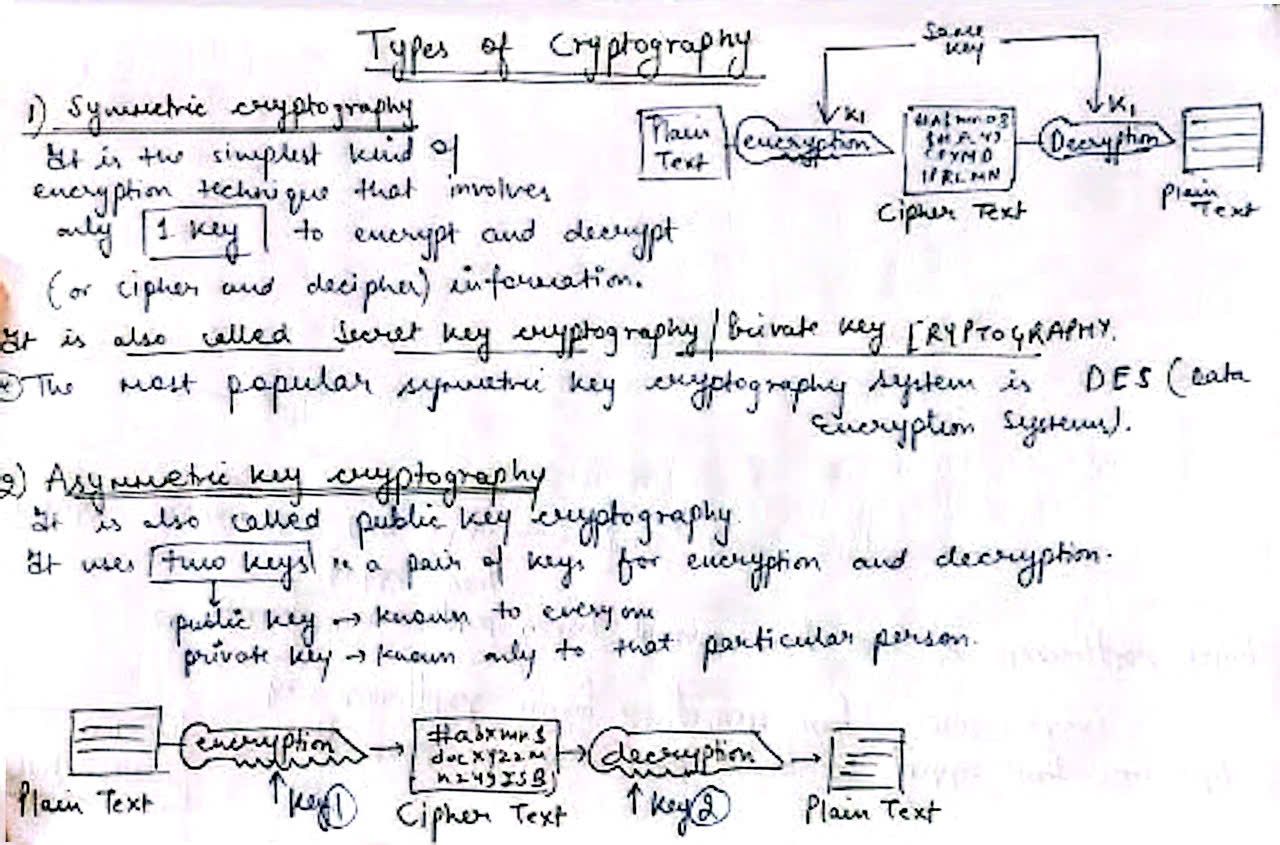 Types of Cryptography
1) Symmetric cryptography
It is the simplest kind of
encryption technique that involves
only 1 Key to encrypt and decrypt
(or cipher and decipher) information.
Same
key
K1
K1
Plain
Text
encryption
Decryption
Cipher Text
Plain
Text
It is also called Secret Key cryptography/Private key CRYPTOGRAPHY.
The most popular symmetric key cryptography system is DES (Data
Encryption System).
2) Asymmetric key cryptography
It is also called public key cryptography
It uses two keys a pair of keys for encryption and decryption.
public key → known to everyone
private key → known only to that particular person.
encryption
#abxmn$
decryption
Plain Text
↑ Key 1
Cipher Text
↑ Key 2
Plain Text